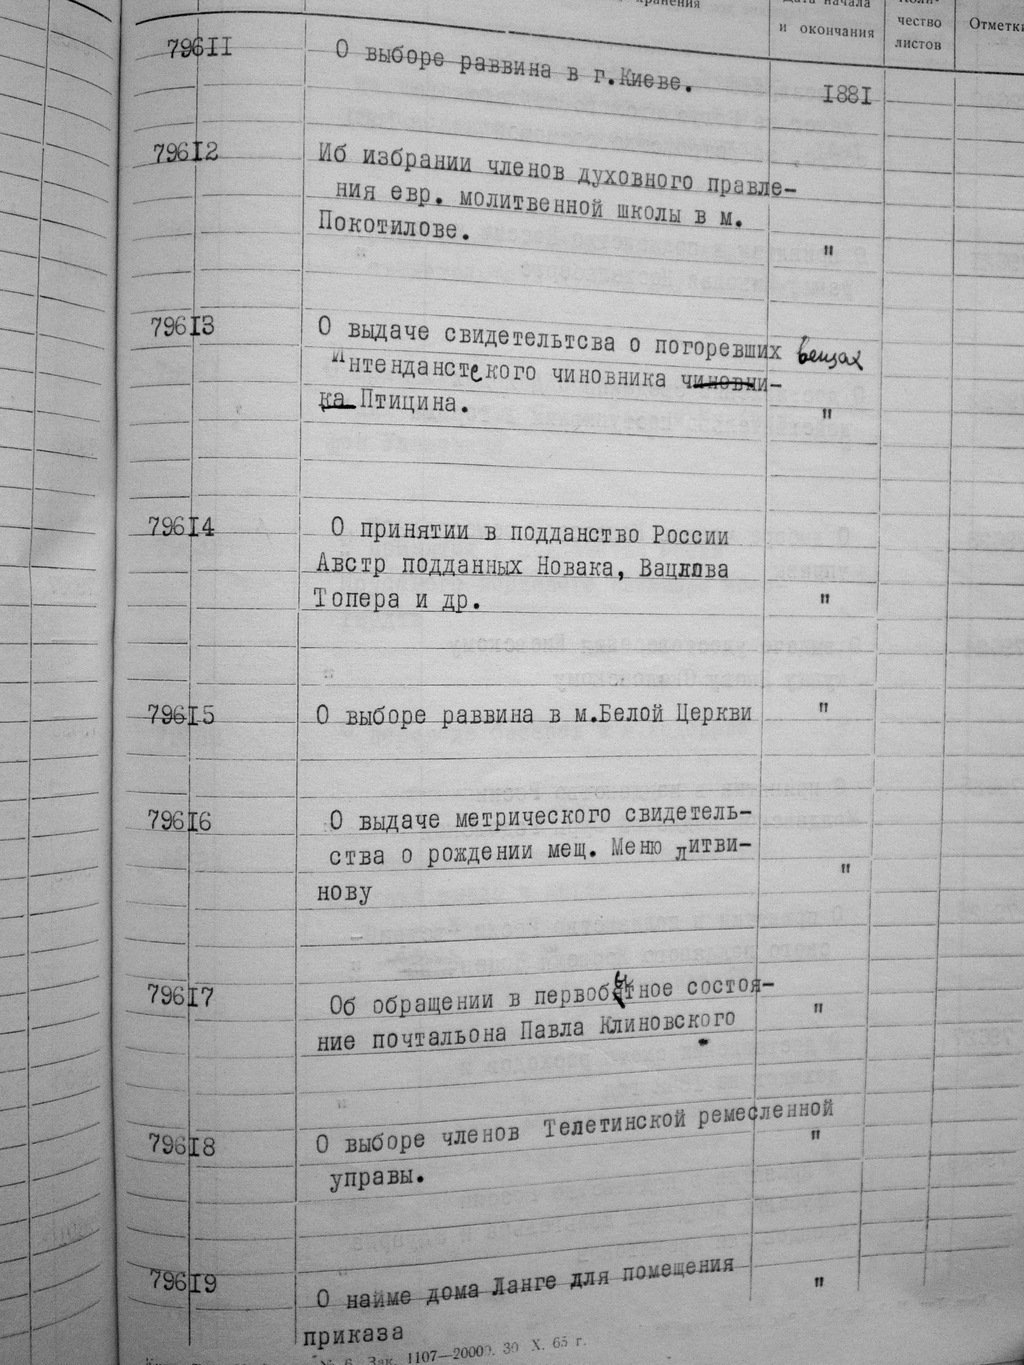 хранения
Дата начала
и окончания
Коли-
чество
листов
Отметки
796II
О выборе раввина в г.Киеве.
I88I
796I2
Иб избрании членов духовного правле-
ния евр. молитвенной школы в м.
Покотилове.
"
796I3
О выдаче свидетельтсва о погоревших вещах
Интендантского чиновника чиновни-
ка Птицина.
"
796I4
О принятии в подданство России
Австр подданных Новака, Вацлова
Топера и др.
"
796I5
О выборе раввина в м.Белой Церкви
"
796I6
О выдаче метрического свидетель-
ства о рождении мещ. Меню литви-
нову
"
796I7
Об обращении в первобытное состоя-
ние почтальона Павла Клиновского
"
796I8
О выборе членов Телетинской ремесленной
управы.
"
796I9
О найме дома Ланге для помещения
приказа
"
№ 6. Зак. 1107—20000. 30 X. 65 г.